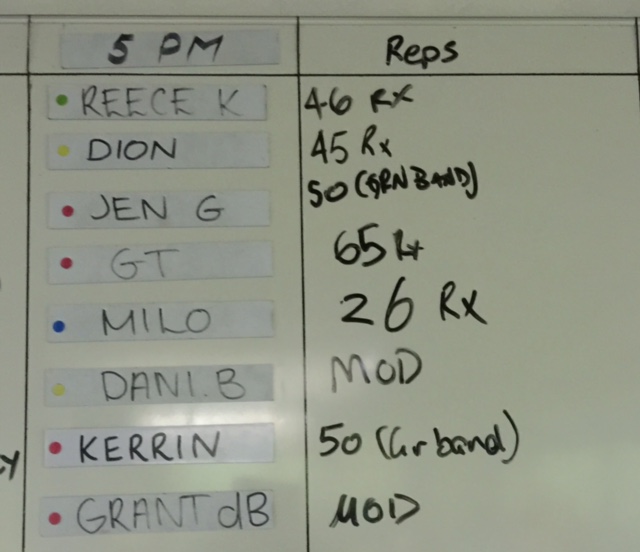 5 PM Reps
REECE K 46 RX
DION 45 Rx
JEN G 50 (GRN BAND)
GT 65
MILO 26 RX
DANI.B MOD
KERRIN 50 (Gr band)
GRANT dB MOD